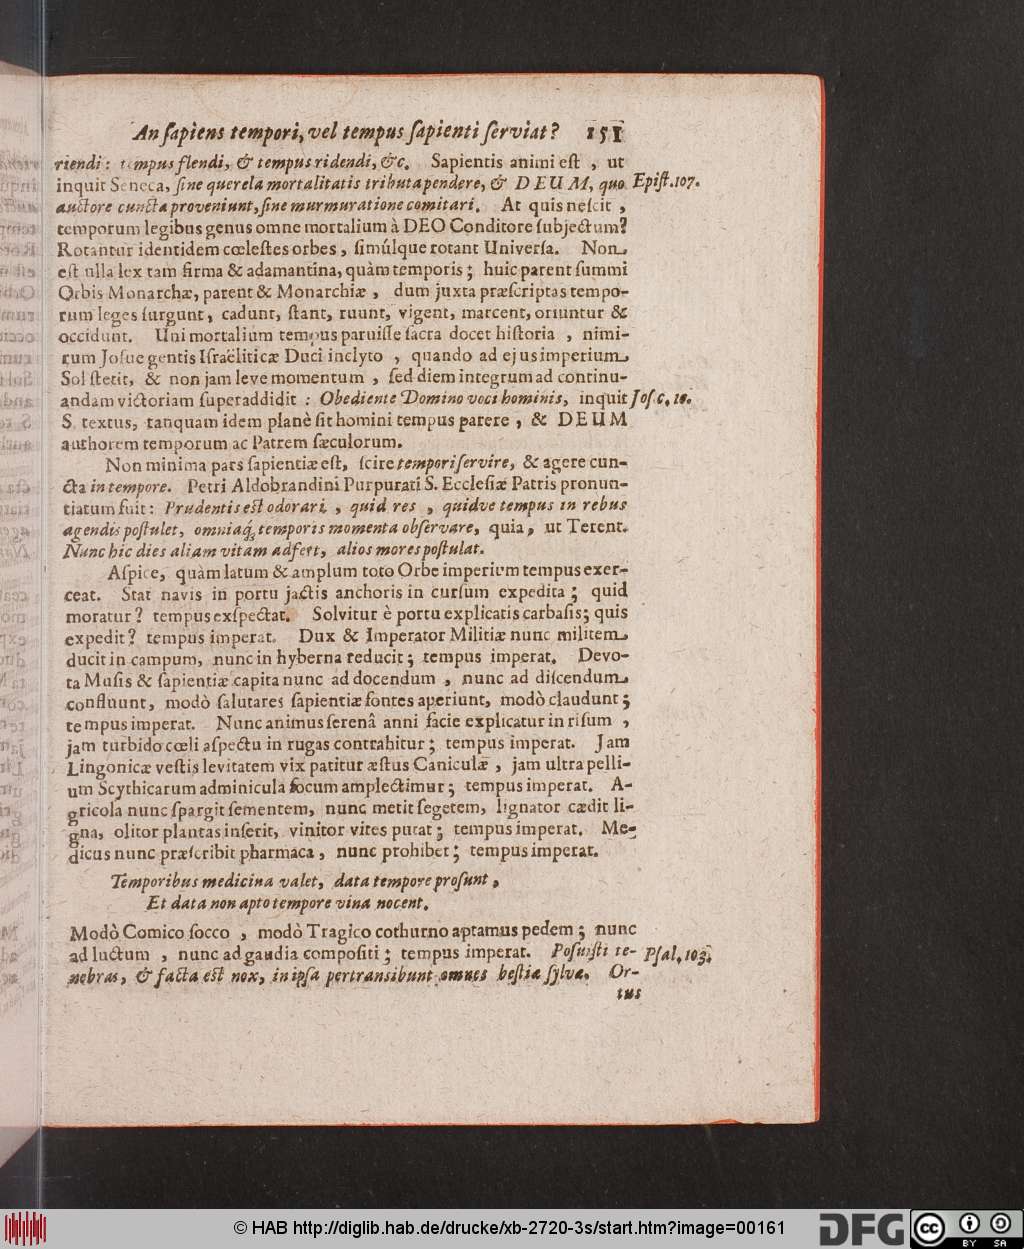 An ſapiens tempori, vel tempus ſapienti ſerviat? 151
riendi: tempus flendi, & tempus ridendi, &c. Sapientis animi eſt , ut
inquit Seneca, ſine querela mortalitatis tributa pendere, & DEUM, quo Epiſt. 107.
auctore cuncta proveniunt, ſine murmuratione comitari. At quis neſcit ,
temporum legibus genus omne mortalium à DEO Conditore ſubjectum?
Rotantur identidem cœleſtes orbes , ſimúlque rotant Univerſa. Non
eſt ulla lex tam firma & adamantina, quàm temporis ; huic parent ſummi
Orbis Monarchæ, parent & Monarchiæ , dum juxta præſcriptas tempo-
rum leges ſurgunt, cadunt, ſtant, ruunt, vigent, marcent, oriuntur &
occidunt. Uni mortalium tempus paruiſſe ſacra docet hiſtoria , nimi-
rum Joſue gentis Iſraëliticæ Duci inclyto , quando ad ejus imperium
Sol ſtetit, & non jam leve momentum , ſed diem integrum ad continu-
andam victoriam ſuperaddidit : Obediente Domino voci hominis, inquit Joſ. c. 10.
S. textus, tanquam idem planè ſit homini tempus parere , & DEUM
authorem temporum ac Patrem ſæculorum.
Non minima pars ſapientiæ eſt, ſcire tempori ſervire, & agere cun-
cta in tempore. Petri Aldobrandini Purpurati S. Eccleſiæ Patris pronun-
tiatum fuit: Prudentis eſt odorari , quid res , quidve tempus in rebus
agendis poſtulet, omniaq́; temporis momenta obſervare, quia, ut Terent.
Nunc hic dies aliam vitam adfert, alios mores poſtulat.
Aſpice, quàm latum & amplum toto Orbe imperium tempus exer-
ceat. Stat navis in portu jactis anchoris in curſum expedita ; quid
moratur ? tempus exſpectat. Solvitur è portu explicatis carbaſis; quis
expedit? tempus imperat. Dux & Imperator Militiæ nunc militem
ducit in campum, nunc in hyberna reducit ; tempus imperat. Devo-
ta Muſis & ſapientiæ capita nunc ad docendum , nunc ad diſcendum
confluunt, modò ſalutares ſapientiæ fontes aperiunt, modò claudunt ;
tempus imperat. Nunc animus ſerenâ anni facie explicatur in riſum ,
jam turbido cœli aſpectu in rugas contrahitur ; tempus imperat. Jam
Lingonicæ veſtis levitatem vix patitur æſtus Caniculæ , jam ultra pelli-
um Scythicarum adminicula focum amplectimur ; tempus imperat. A-
gricola nunc ſpargit ſementem, nunc metit ſegetem, lignator cædit li-
gna, olitor plantas inſerit, vinitor vites putat ; tempus imperat. Me-
dicus nunc præſcribit pharmaca , nunc prohibet ; tempus imperat.
Temporibus medicina valet, data tempore proſunt ,
Et data non apto tempore vina nocent.
Modò Comico ſocco , modò Tragico cothurno aptamus pedem ; nunc
ad luctum , nunc ad gaudia compoſiti ; tempus imperat. Poſuiſti te- Pſal. 103.
nebras, & facta eſt nox, in ipſa pertransibunt omnes beſtia ſylvæ. Or-
tus
© HAB http://diglib.hab.de/drucke/xb-2720-3s/start.htm?image=00161
DFG
cc BY SA